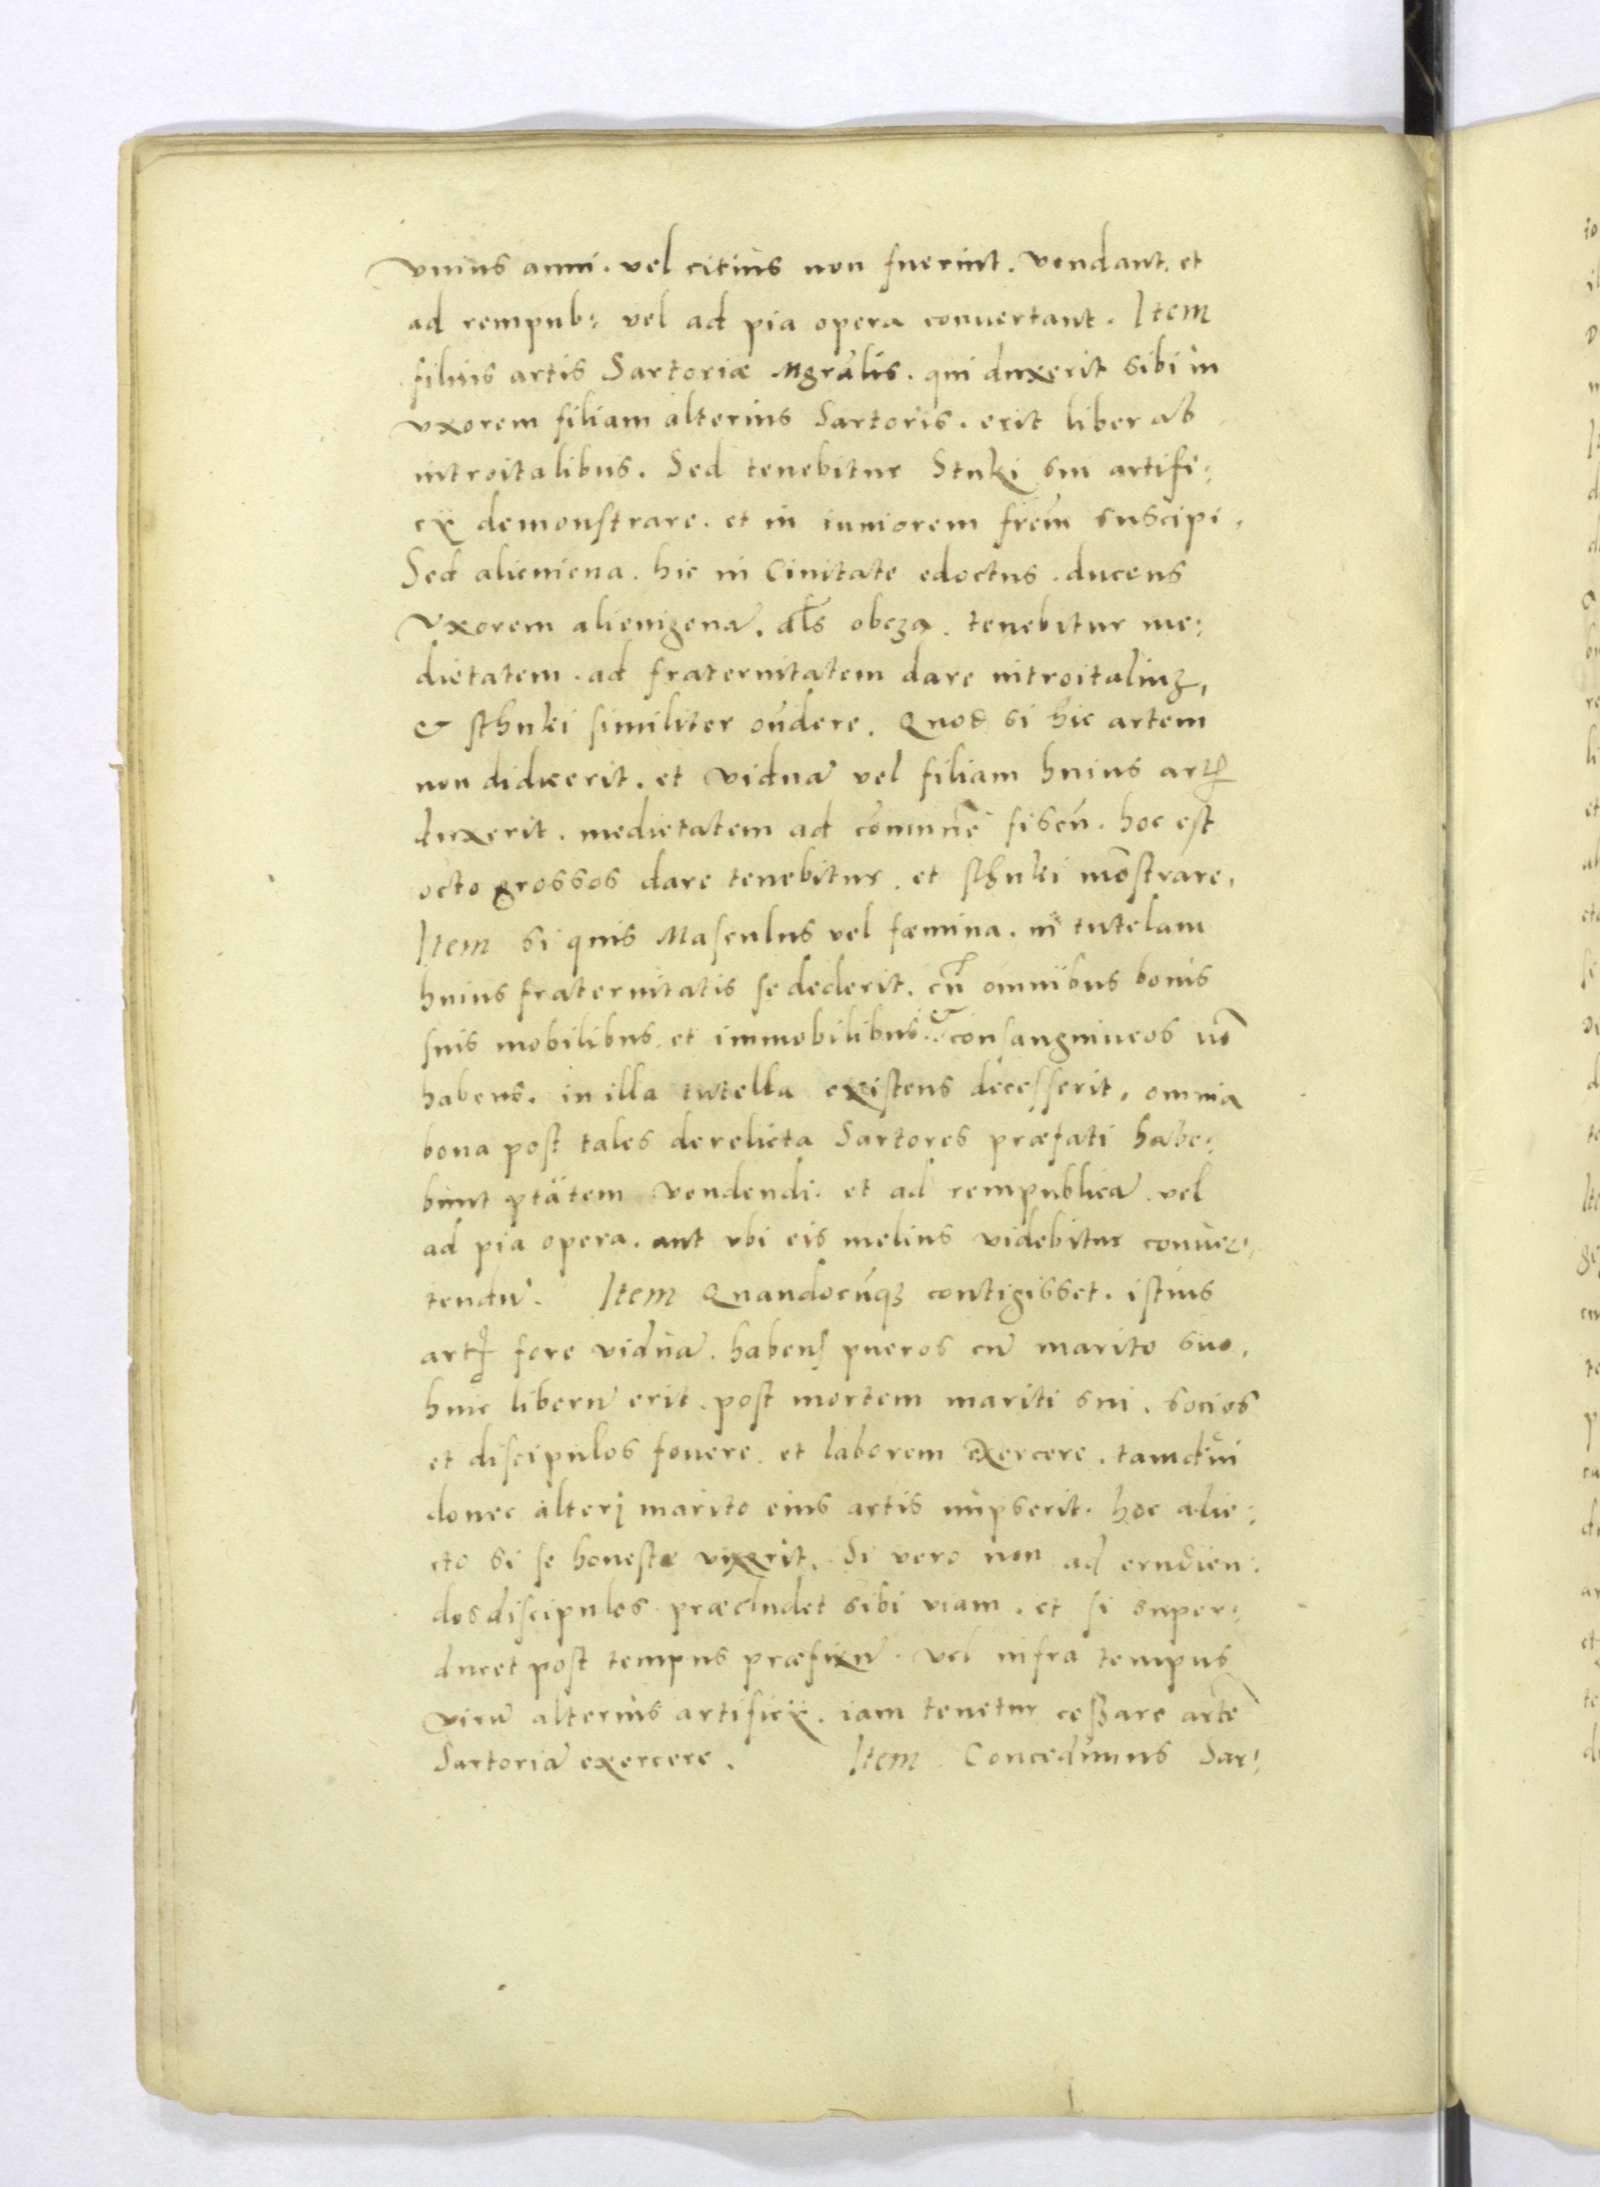 vnius anni. vel citius non fuerint. vendant. et
ad rempub: vel ad pia opera conuertant. Item
filius artis Sartoriæ Mgrãlis. qui duxerit sibi in
vxorem filiam alterius Sartoris. erit liber ab
introitalibus. Sed tenebitur Stuki sui artifi:
cÿ demonstrare. et in iuniorem frēm suscipi.
Sed alieniena. hic in Ciuitate edoctus. ducens
Vxorem alienigenã. al̃s obcza. tenebitur me:
dietatem. ad fraternitatem dare introitaliuz,
& sthuki similiter oñdere. Quod si hic artem
non didicerit. et viduã vel filiam huius artis
duxerit. medietatem ad cōmunē fiscū. hoc est
octo grossos dare tenebitur. et sthuki mōstrare.
Item si quis Masculus vel fæmina. in tutelam
huius fraternitatis se dederit. cū omnibus bonis
suis mobilibus. et immobilibus. & consanguineos nō
habens. in illa tutella existens decesserit, omnia
bona post tales derelicta Sartores præfati habe:
bunt ptãtem vendendi. et ad rempublicã. vel
ad pia opera. aut vbi eis melius videbitur conuer:
tendū. Item Quandocūqz contigisset. istius
artis fore viduã. habens pueros cū marito suo.
huic liberū erit. post mortem mariti sui. socios
et discipulos fouere. et laborem exercere. tamdiu
donec alteri marito eius artis nupserit. hoc adie:
cto si se honeste vixerit. Si vero non ad erudien:
dos discipulos præcludet sibi viam. et si super:
ducet post tempus præfixū. vel infra tempus
virū alterius artificÿ. iam tenetur cessare artē
Sartoriã exercere. Item Concedimus Sar: